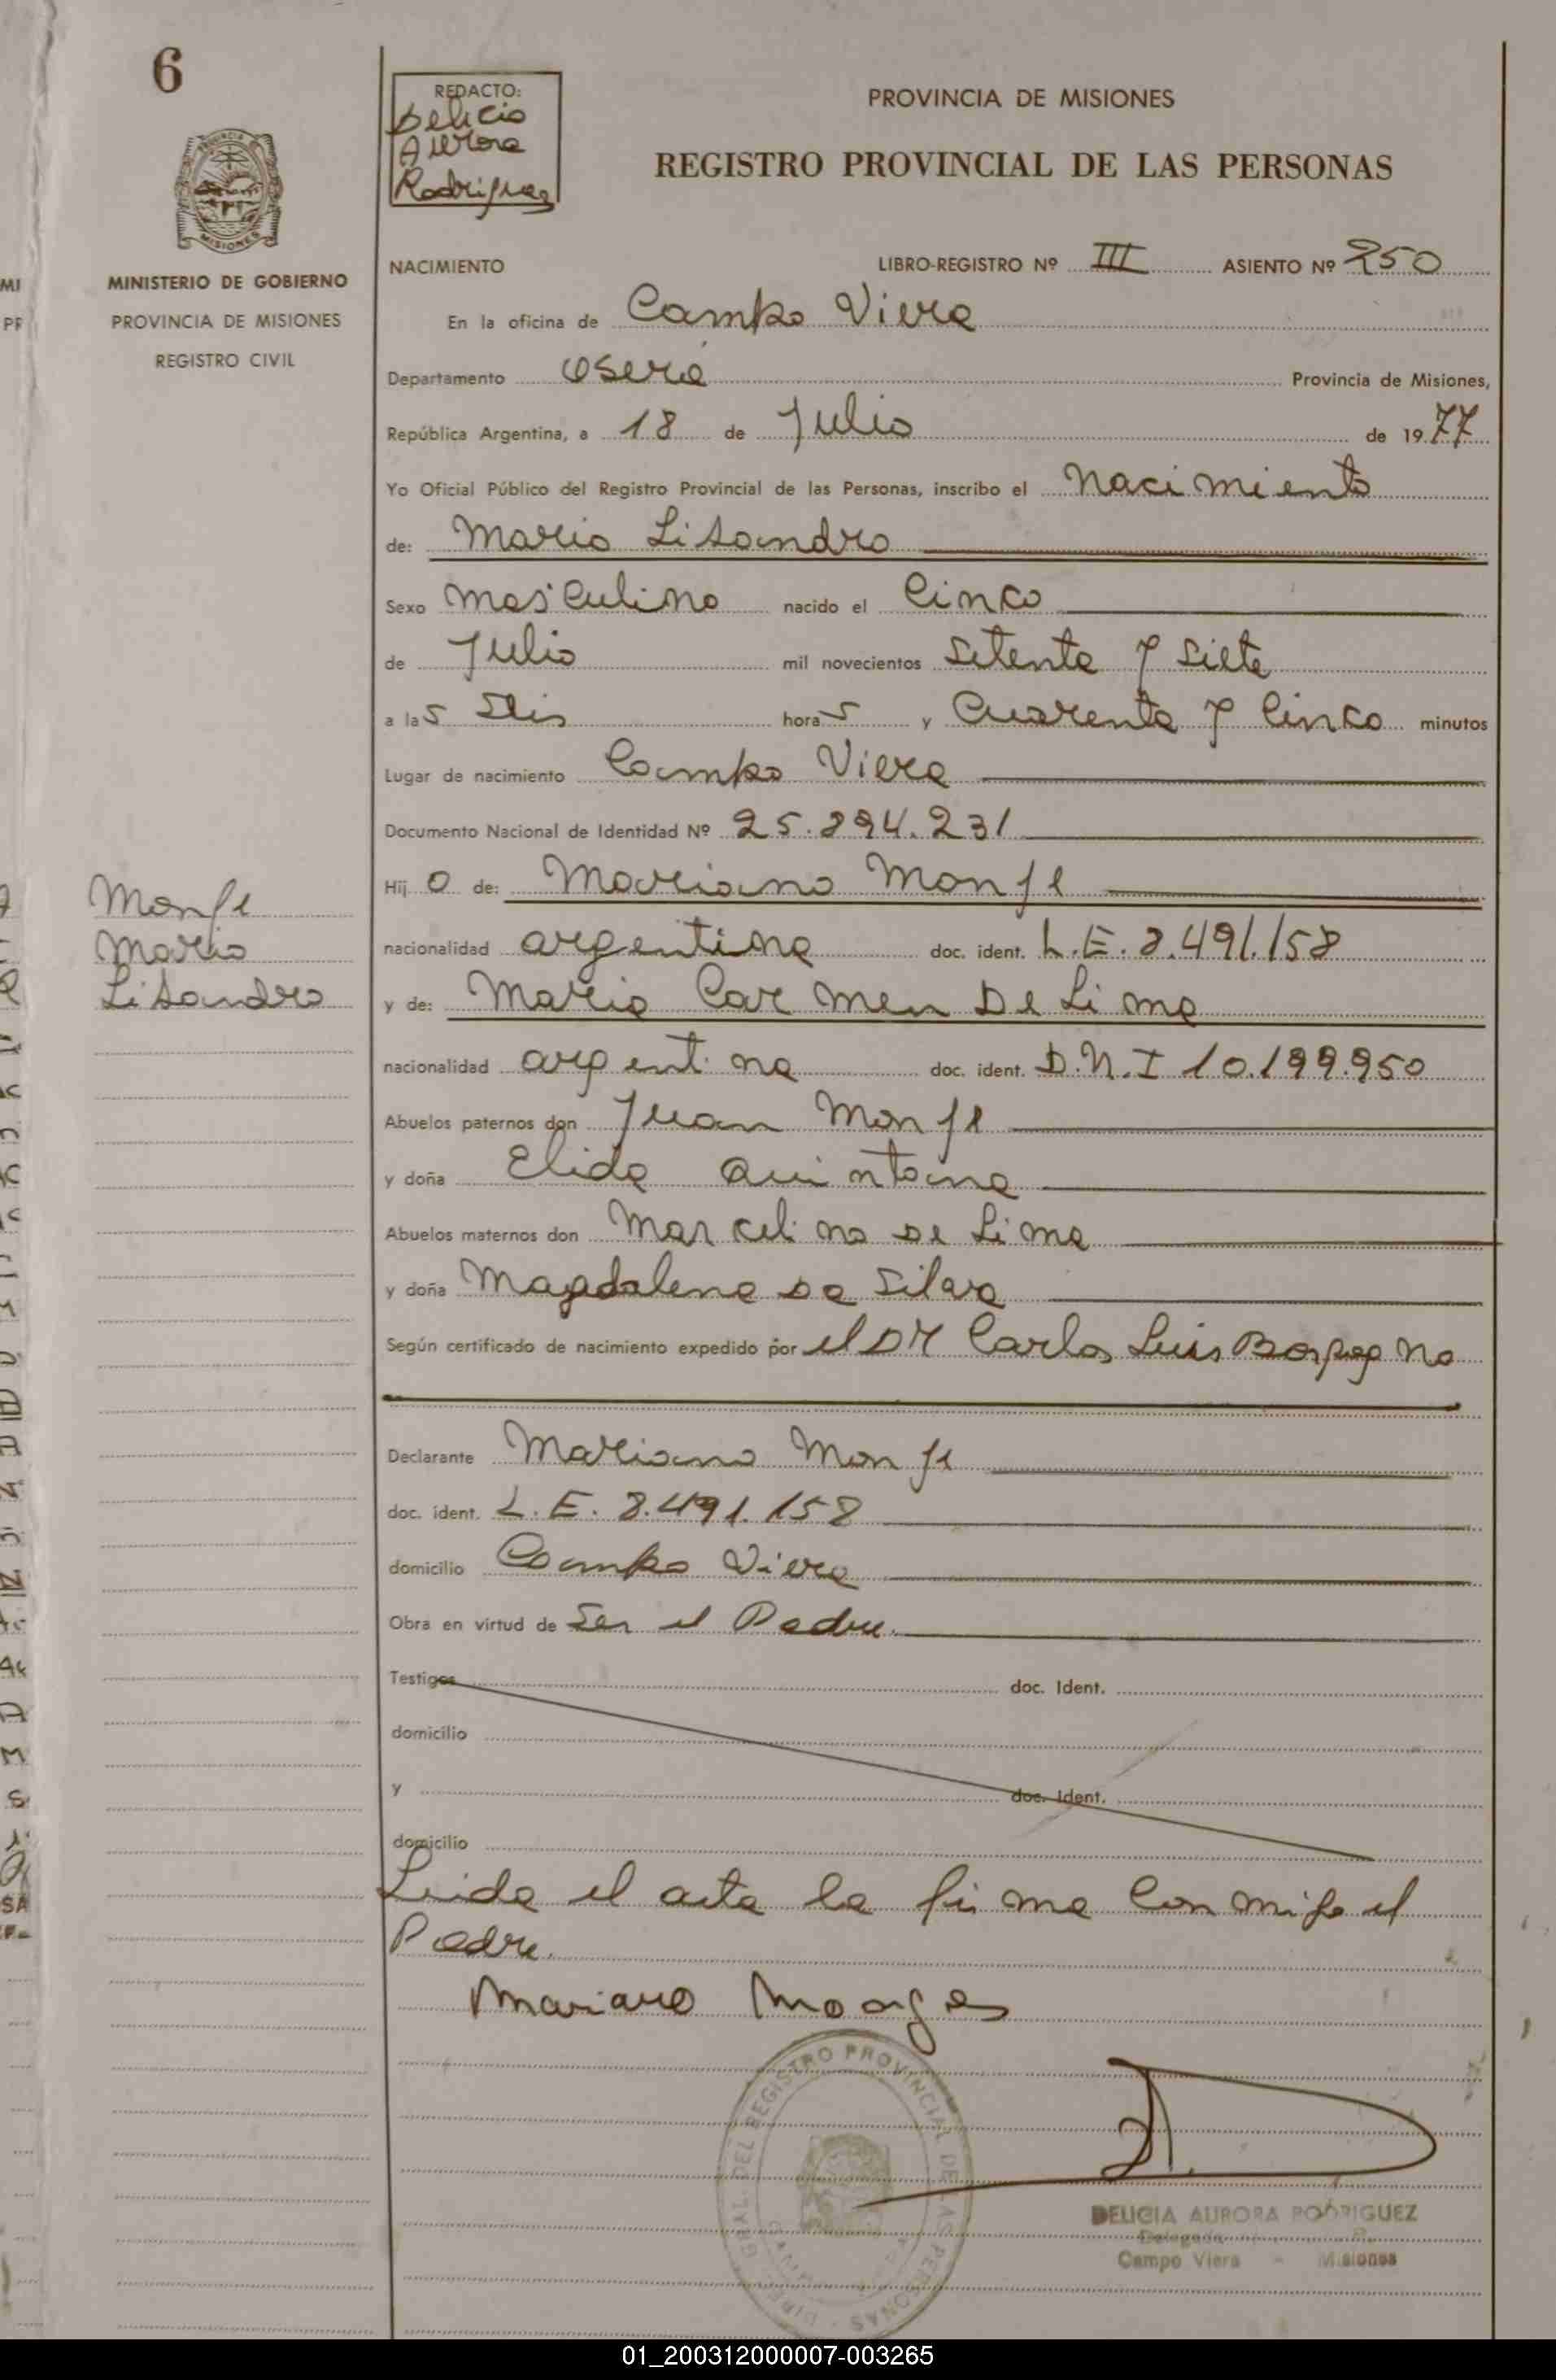 6
REDACTO:
Delicia
Aurora
Rodriguez
PROVINCIA DE MISIONES
REGISTRO PROVINCIAL DE LAS PERSONAS
MINISTERIO DE GOBIERNO
PROVINCIA DE MISIONES
REGISTRO CIVIL
NACIMIENTO LIBRO-REGISTRO Nº III ASIENTO Nº 250
En la oficina de Campo Viera
Departamento Oberá Provincia de Misiones,
República Argentina, a 18 de Julio de 1977
Yo Oficial Público del Registro Provincial de las Personas, inscribo el Nacimiento
de: Mario Lisandro
Sexo Masculino nacido el Cinco
de Julio mil novecientos Setenta y Siete
a las Seis horas y Cuarenta y Cinco minutos
Lugar de nacimiento Campo Viera
Documento Nacional de Identidad Nº 25.894.231
Hijo de: Mariano Monge
Monge
Mario
Lisandro
nacionalidad argentina doc. ident. L.E. 8.491.158
y de: Maria Carmen De Lima
nacionalidad argentina doc. ident. D.N.I 10.199.950
Abuelos paternos don Juan Monge
y doña Elida Quintana
Abuelos maternos don Marcelino De Lima
y doña Magdalena Da Silva
Según certificado de nacimiento expedido por el DR Carlos Luis
Declarante Mariano Monge
doc. ident. L.E. 8.491.158
domicilio Campo Viera
Obra en virtud de Ser el Padre.
Testigos doc. Ident.
domicilio
y doc. Ident.
domicilio
Leida el acta la firma Conmigo el
Padre.
Mariano Monges
DIREC. GRAL. DEL REGISTRO PROVINCIAL DE LAS PERSONAS
DELICIA AURORA RODRIGUEZ
Delegada
Campo Viera - Misiones
01_200312000007-003265